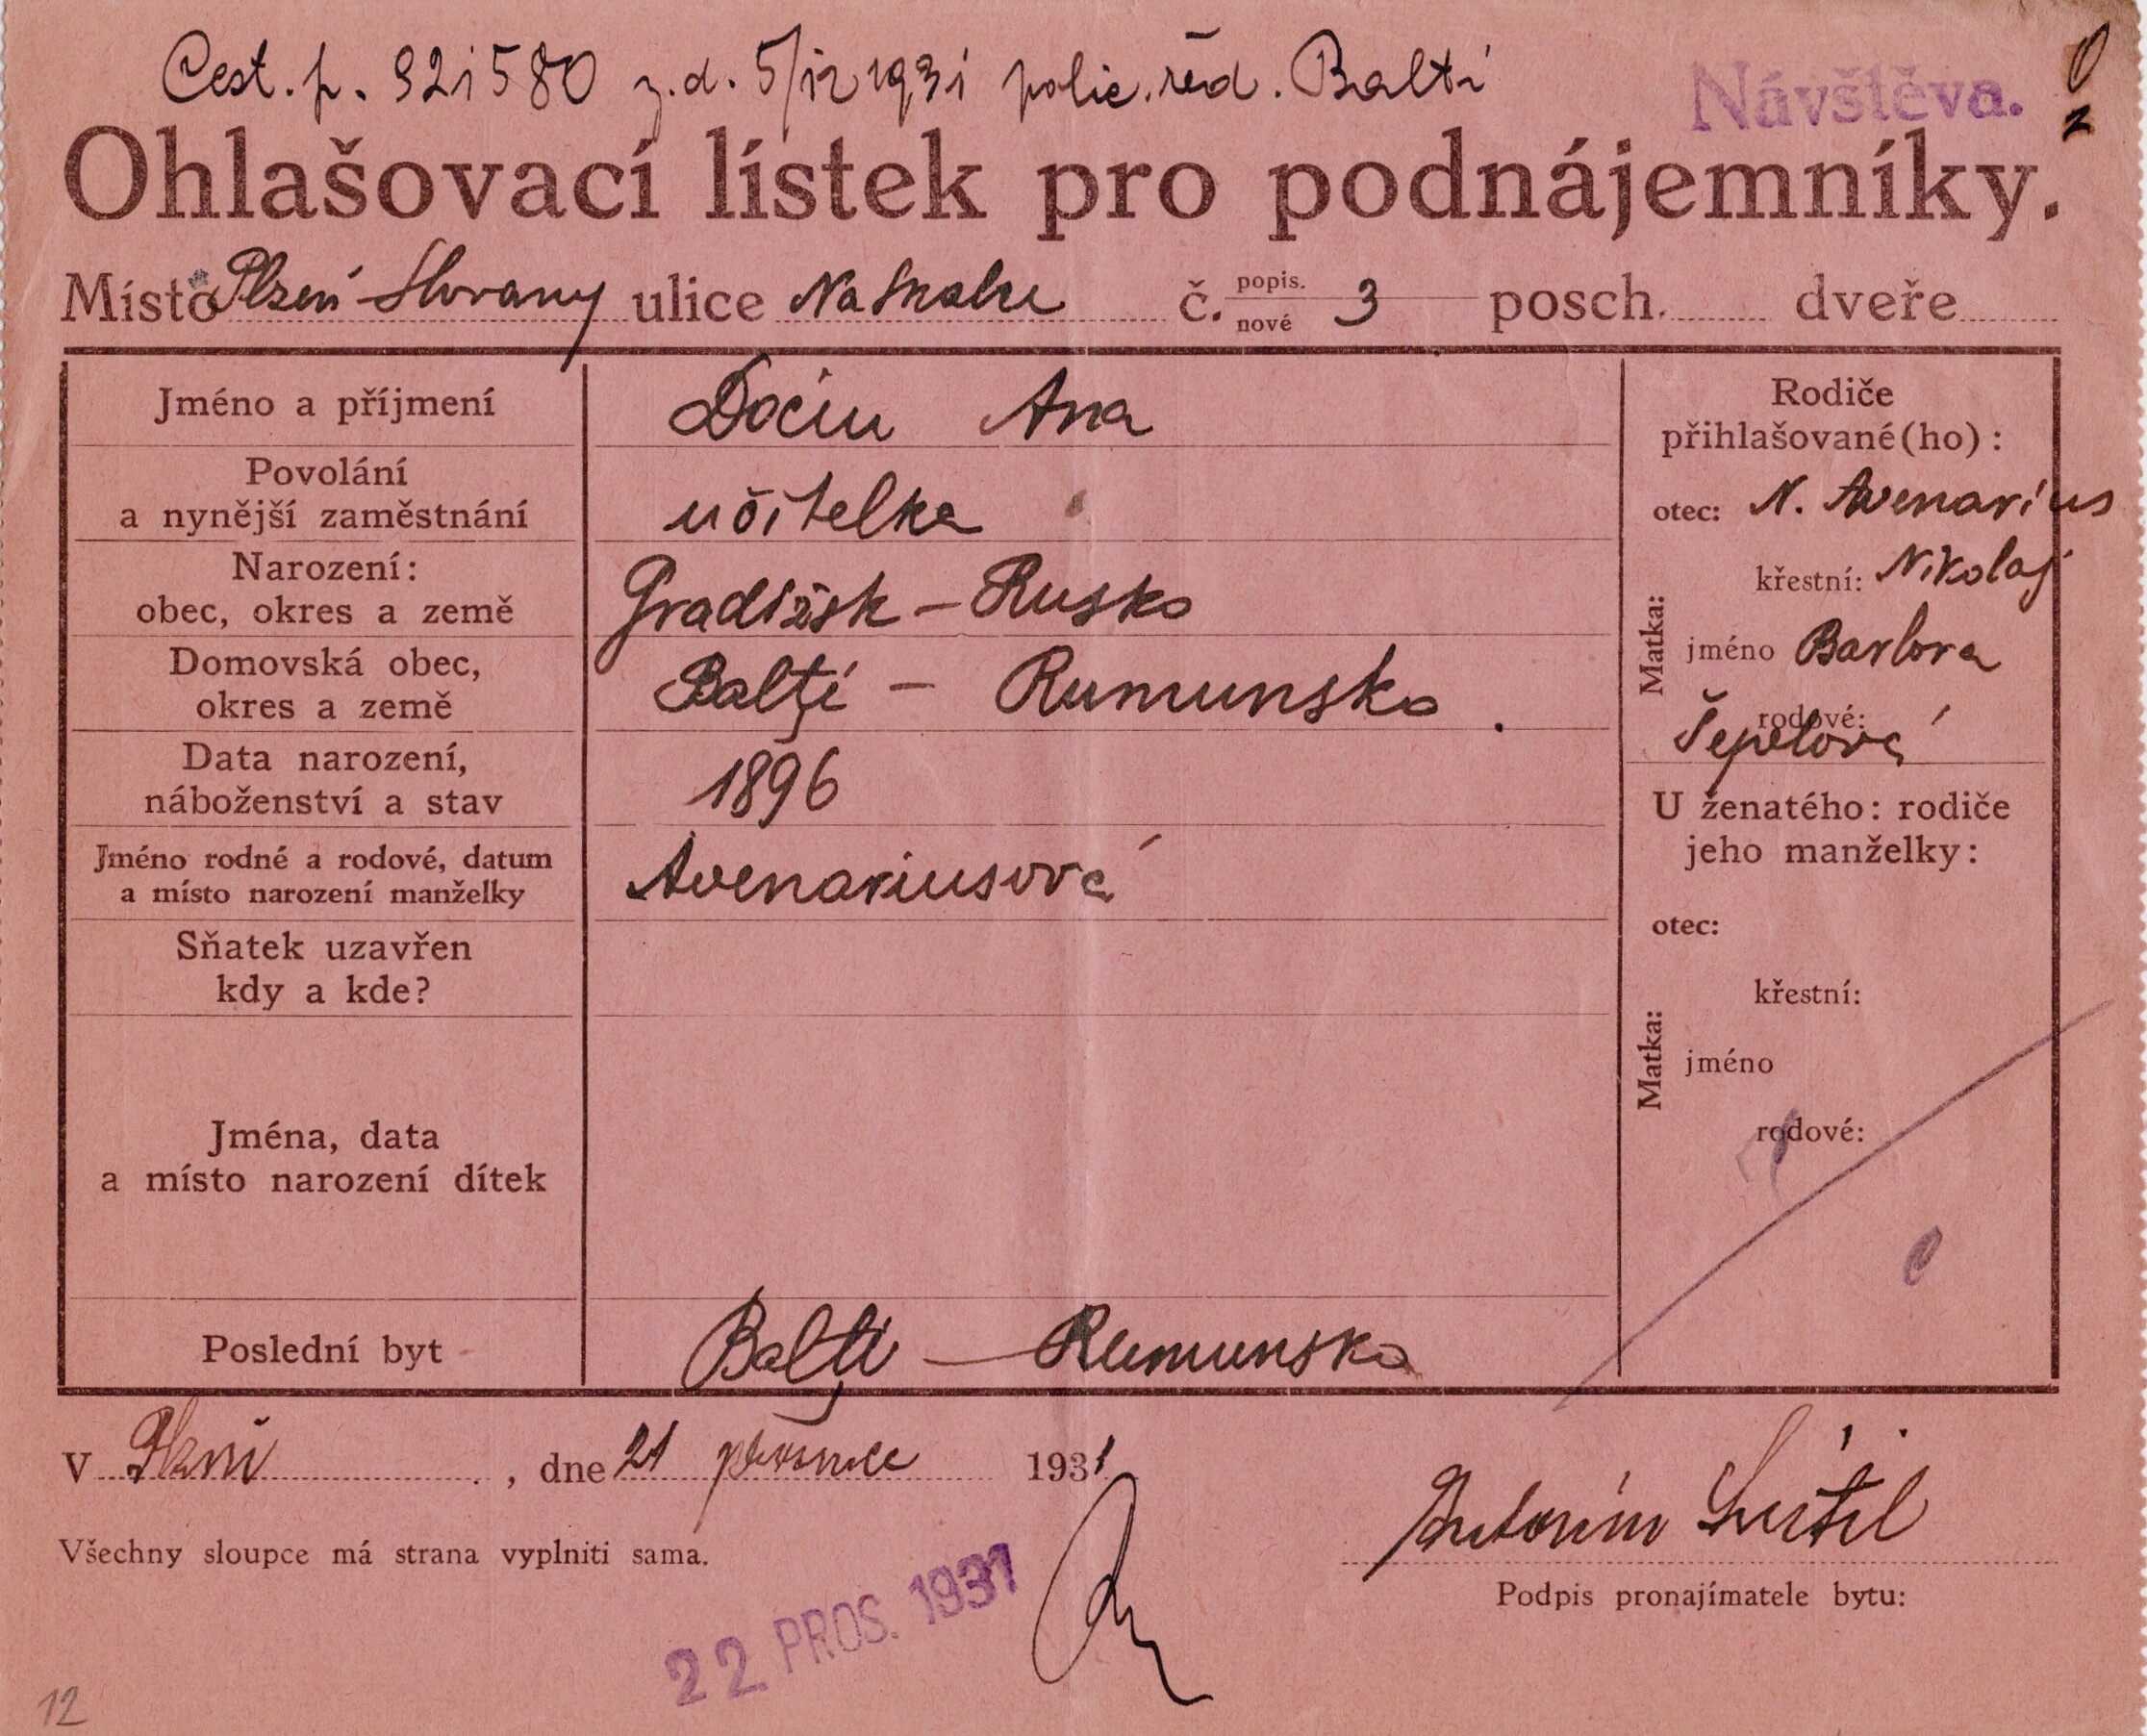 Cest. p. 921580 z.d. 5/12 1931 polic. řed. Balti
Návštěva.
Ohlašovací lístek pro podnájemníky.
Místo Plzeň Slovany ulice Na Skalce č. popis. nové 3 posch. dveře
Jméno a příjmení Dociu Ana
Povolání
a nynější zaměstnání učitelka
Narození:
obec, okres a země Gradižsk – Rusko
Domovská obec,
okres a země Balţi – Rumunsko.
Data narození,
náboženství a stav 1896
Jméno rodné a rodové, datum
a místo narození manželky Avenariusová
Sňatek uzavřen
kdy a kde?
Jména, data
a místo narození dítek
Poslední byt Balţi – Rumunsko
Rodiče
přihlašované(ho):
otec: N. Avenarius
Matka:
křestní: Nikolaj
jméno Barbora
rodové:
Šepelová
U ženatého: rodiče
jeho manželky:
otec:
Matka:
křestní:
jméno
rodové:
V Plzni, dne 21 prosince 1931
Všechny sloupce má strana vyplniti sama.
Antonín
Podpis pronajímatele bytu:
22 PROS. 1931
12